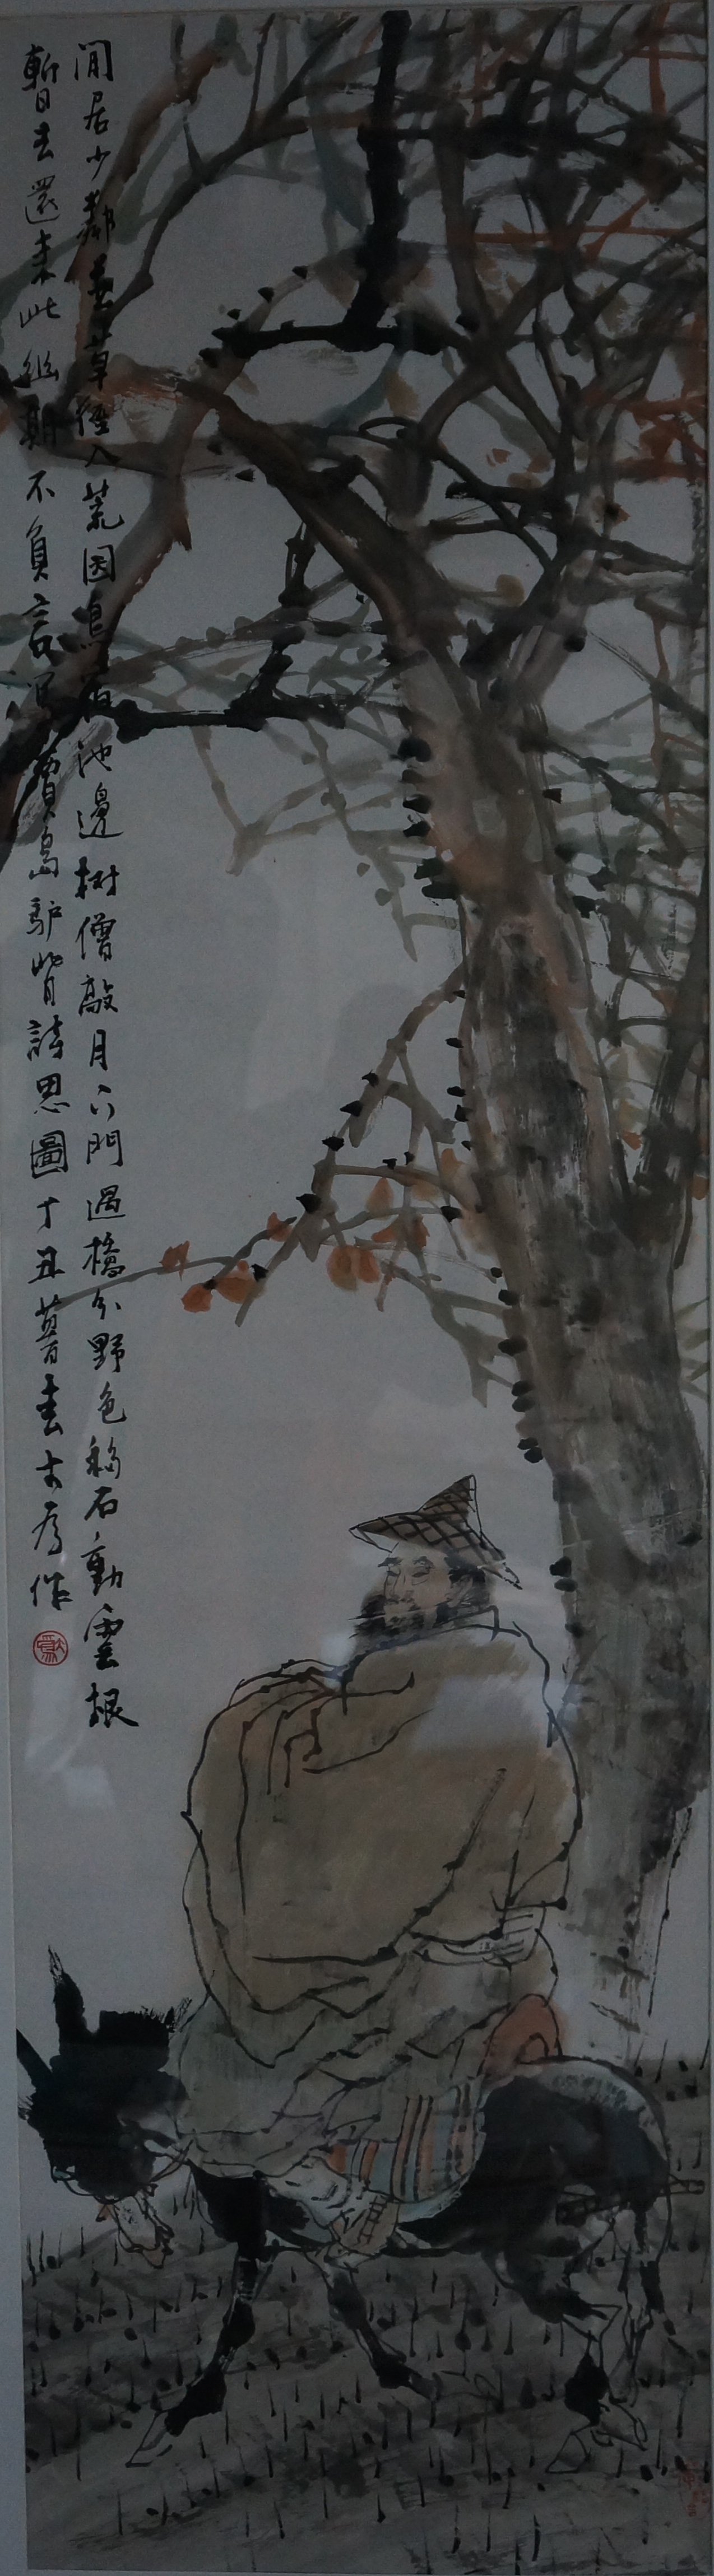 閒居少鄰並草徑入荒园鳥宿池邊树僧敲月下門過橋分野色移石動雲根
暫去還来此幽期不負言写賈島驴背詩思圖丁丑暮春作